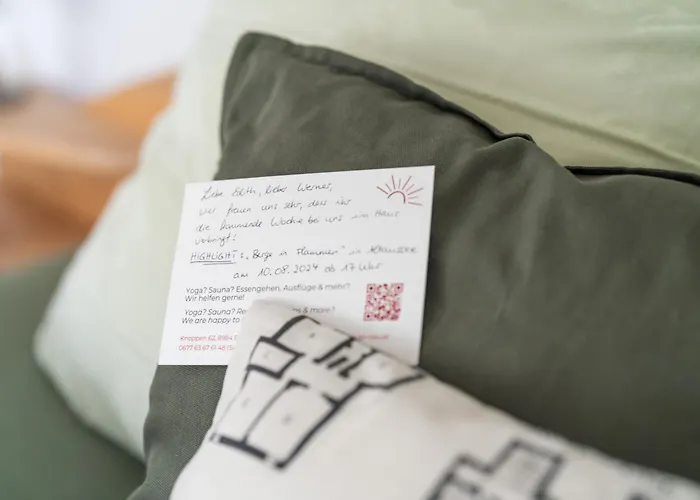 Liebe Edith, liebe Werner,
wir freuen uns sehr, dass ihr
die kommende Woche bei uns im Haus
verbringt!
HIGHLIGHT: „Berge in Flammen" in
am 10.08.2024 ab 17 Uhr
Yoga? Sauna? Essengehen, Ausflüge & mehr?
Wir helfen gerne!
Yoga? Sauna? & more?
We are happy to
Knoppen 62, 8984
0677 63 67 61 48